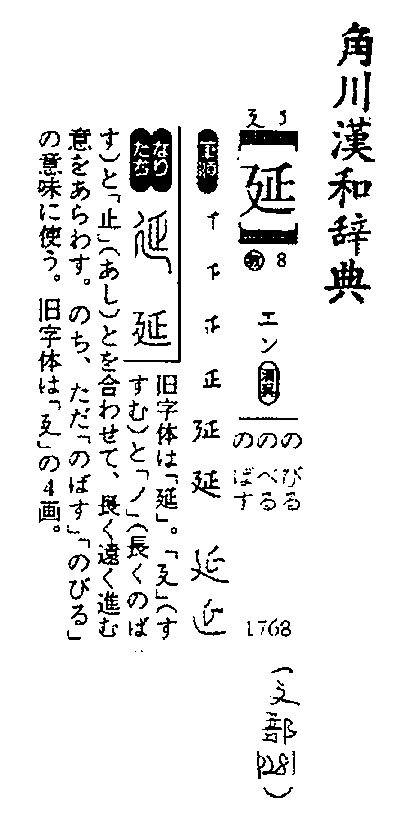 角川漢和辞典
廴 5
延
教 8
エン 漢呉
のびる
のべる
のばす
1768
(廴部
P281)
筆順
正 延 延
なりたち
延
旧字体は「延」。「廴」(す
すむ)と「ノ」(長くのば
す)と「止」(あし)とを合わせて、長く遠く進む
意をあらわす。のち、ただ「のばす」「のびる」
の意味に使う。旧字体は「廴」の4画。